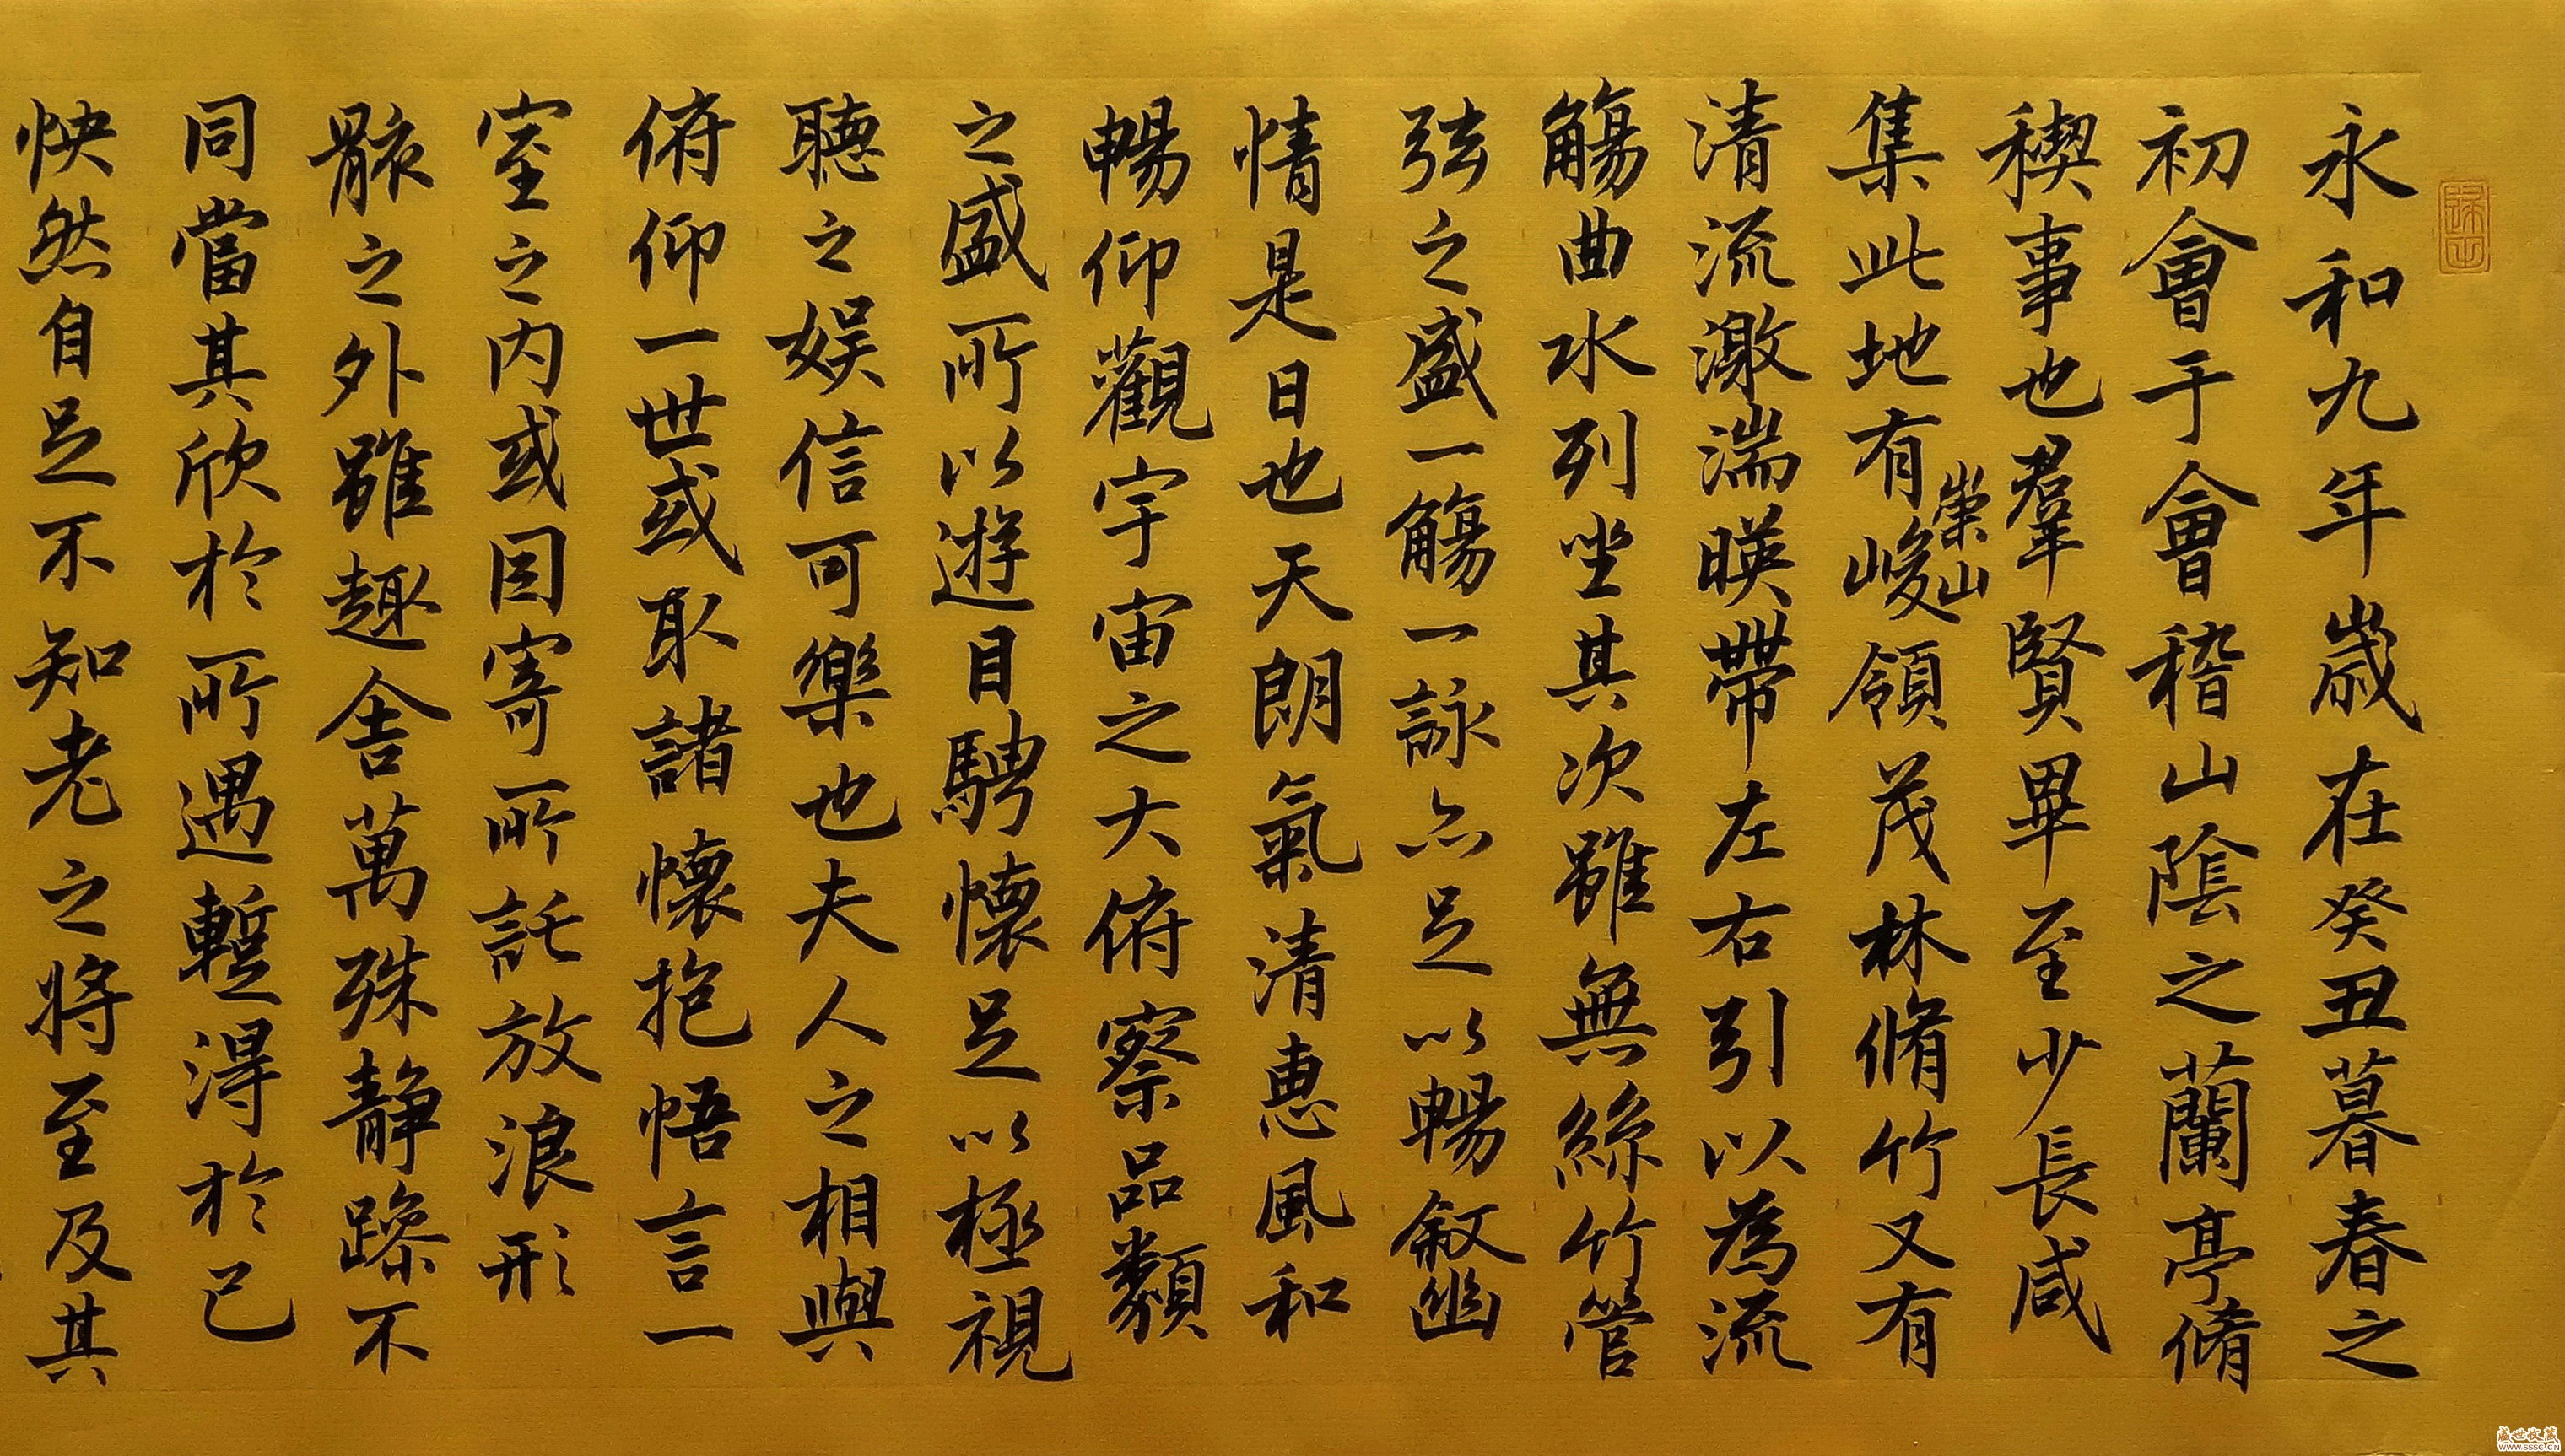 永和九年歲在癸丑暮春之
初會于會稽山陰之蘭亭脩
稧事也羣賢畢至少長咸
集此地有崇山峻領茂林脩竹又有
清流激湍暎帶左右引以為流
觴曲水列坐其次雖無絲竹管
弦之盛一觴一詠亦足以暢叙幽
情是日也天朗氣清惠風和
暢仰觀宇宙之大俯察品類
之盛所以遊目騁懷足以極視
聽之娛信可樂也夫人之相與
俯仰一世或取諸懷抱悟言一
室之内或因寄所託放浪形
骸之外雖趣舍萬殊静躁不
同當其欣於所遇蹔得於己
怏然自足不知老之將至及其
盛世收藏
www.sssc.cn